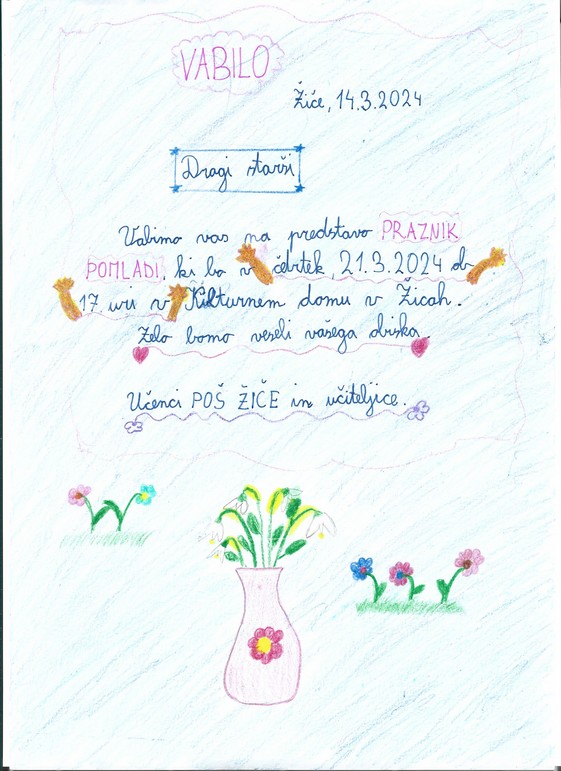 VABILO
Žiče, 14.3.2024
Dragi starši
Vabimo vas na predstavo PRAZNIK
POMLADI, ki bo v četrtek, 21.3.2024 ob
17 uri v Kulturnem domu v Žicah.
Zelo bomo veseli vašega obiska.
Učenci POŠ ŽIČE in učiteljice.